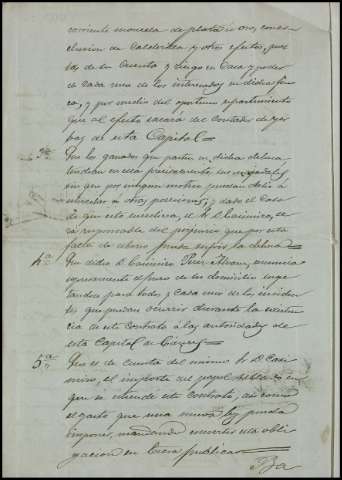 corriente moneda de plata ú oro, con es-
clusion de Calderilla y otros efectos, pues
tos de su Cuenta y riesgo en Casa y poder
de Cada uno de los interesados en dicha fin
ca, y por medio del oportuno apartamiento
que al efecto sacará del Contador de yer
bas de esta Capital
3ª Que los ganados que pasten en dicha dehesa,
tendrán en ella precisamente sus
sin que por ningun motivo puedan darlo á
otras posesiones; y dado el Caso
de que esto sucediera, el D. Casimiro, se
rá responsable del perjuicio que por esta
falta de abono pueda sufrir la dehesa
4ª Que dicho D. Casimiro Perez renuncia
espresamente el fuero de su domicilio suge
tandose para todos y cada uno de los inciden
tes que puedan ocurrir durante la existen
cia de este contrato á las autoridades de
esta Capital de Cáceres
5ª Que es de cuenta del mismo D. Casi
miro, el importe del papel sellado en
que se estiende este contrato, así como
el gasto que una nueva ley pueda
imponer, mandando convertir esta obli
gacion en Escra publica